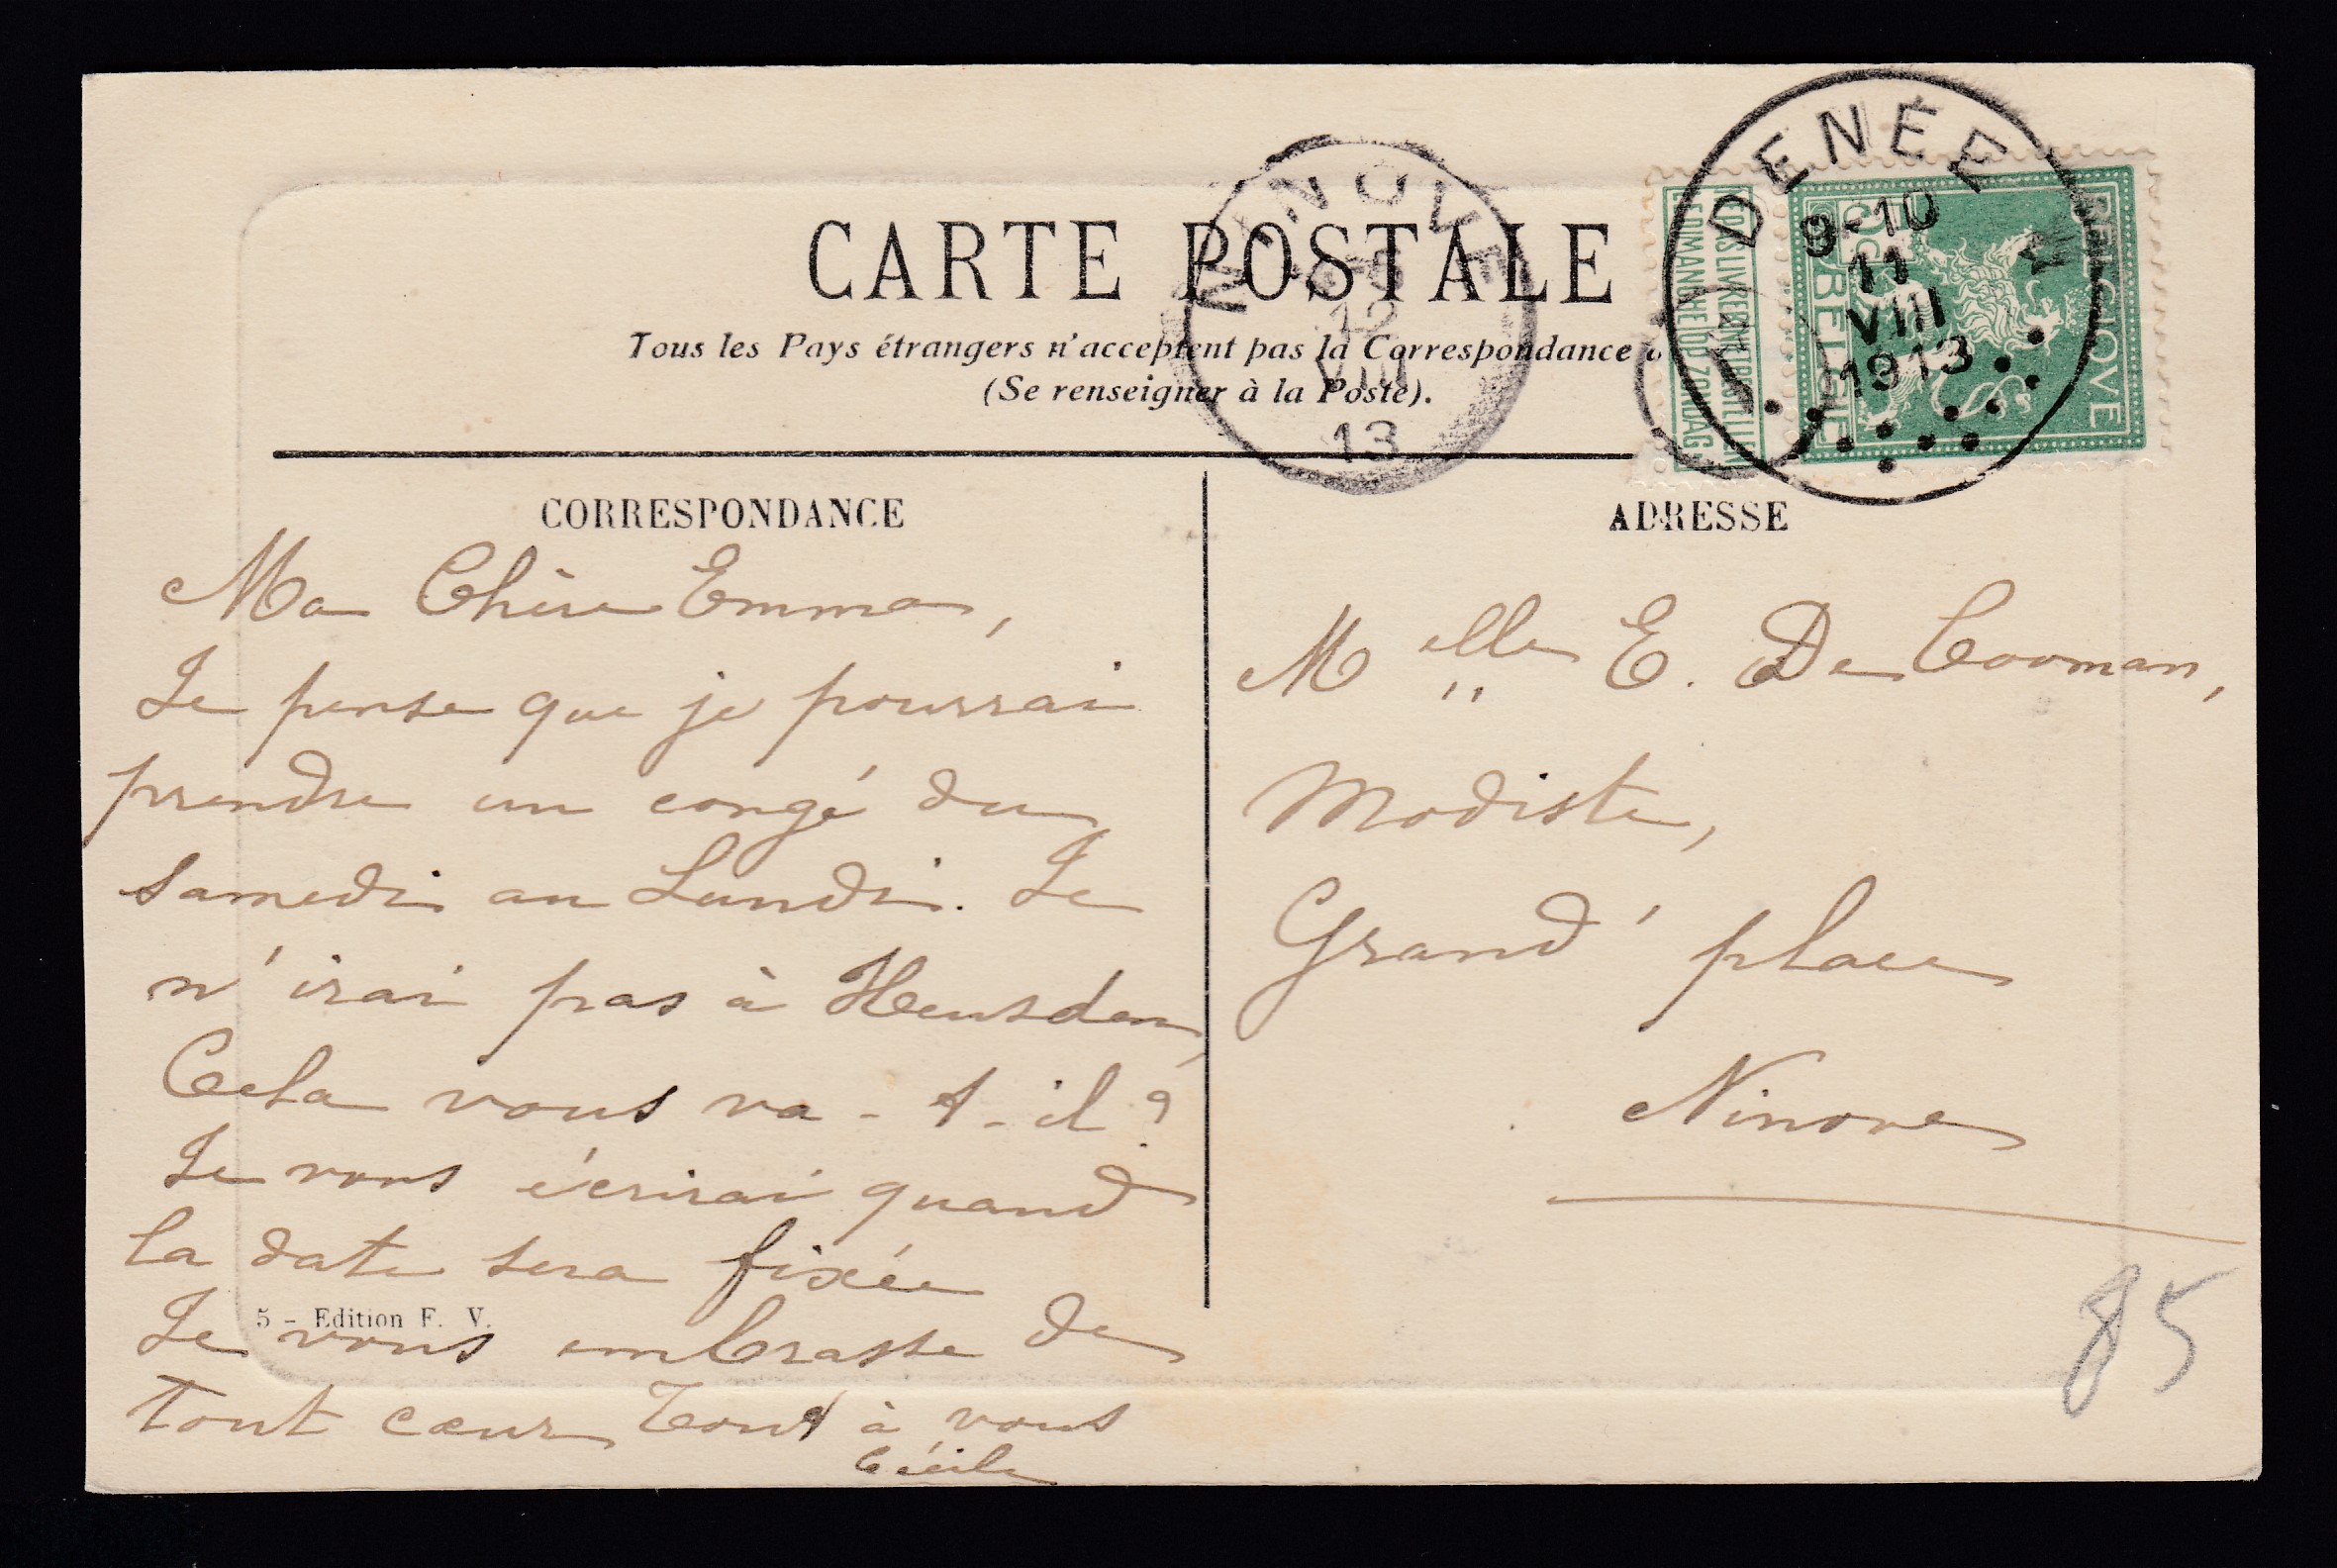 CARTE POSTALE
Tous les Pays étrangers n'acceptent pas la Correspondance
(Se renseigner à la Poste).
NINOVE
12
VIII
13
DENÉE
9-10
11
VIII
1913
BELGIQUE
BELGIË
CORRESPONDANCE
Ma Chère Emma,
Je pense que je pourrai
prendre un congé du
samedi au Lundi. Je
n'irai pas à Heusden,
Cela vous va-t-il?
Je vous écrirai quand
la date sera fixée
Je vous embrasse de
tout cœur Tout à vous
Cécile
5 - Edition F. V.
ADRESSE
Melle E. De Cooman,
Modiste,
Grand' place
Ninove
85